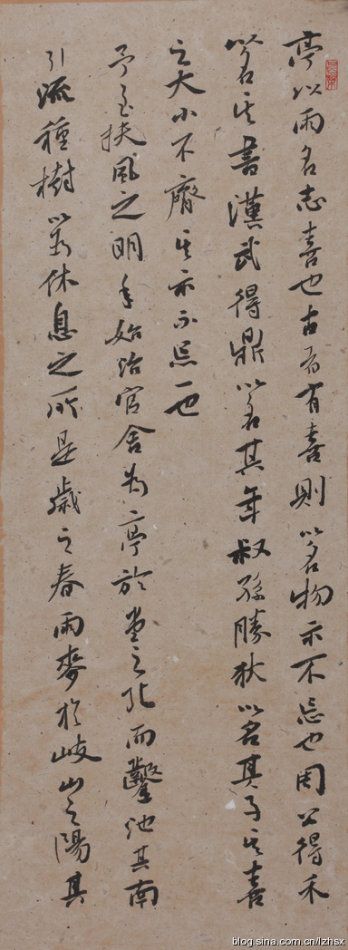 亭以雨名志喜也古者有喜則以名物示不忘也周公得禾
以名其書漢武得鼎以名其年叔孫勝狄以名其子其喜
之大小不齊其示不忘一也
予至扶風之明年始治官舍為亭於堂之北而鑿池其南
引流種樹以為休息之所是歲之春雨麥於岐山之陽其
blog.sina.com.cn/lzhsx